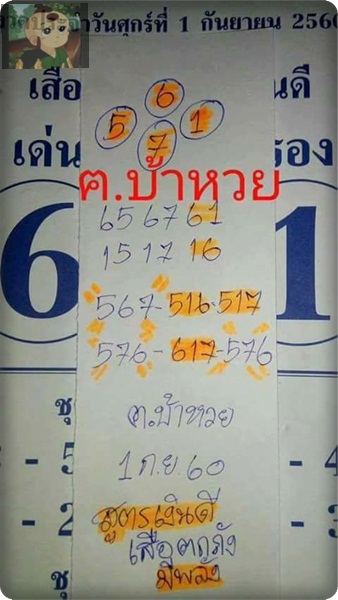 วดประจำวันศุกร์ที่ 1 กันยายน 2560
เสือ
นดี
6
5 1
7
เด่น
รอง
ฅ.บ้าหวย
6 1
65 67 61
15 17 16
567-516-517
576-617-576
ฅ.บ้าหวย
1 ก.ย. 60
- 5
- 4
- 2
- 3
สูตรเงินดี
เสือตกถัง
มีพลัง